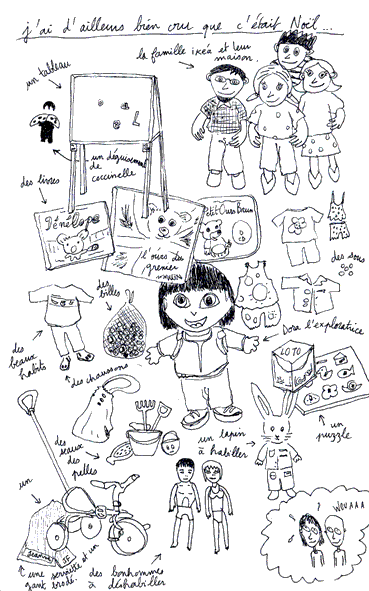 j'ai d'ailleurs bien cru que c'était Noël...
la famille ikéa et leur
maison.
un tableau
un déguisement
de
coccinelle
des livres
Pénélope
l'ours du
grenier
Petit Ours Brun
des sous
des
billes
Dora l'exploratrice
des
beaux
habits
des chaussons
LOTO
un
puzzle
des
seaux
des
pelles
un lapin
à habiller
un
Jeanne
JF
une serviette et un
gant brodé.
des bonhommes
à déshabiller
?
WOUAAA